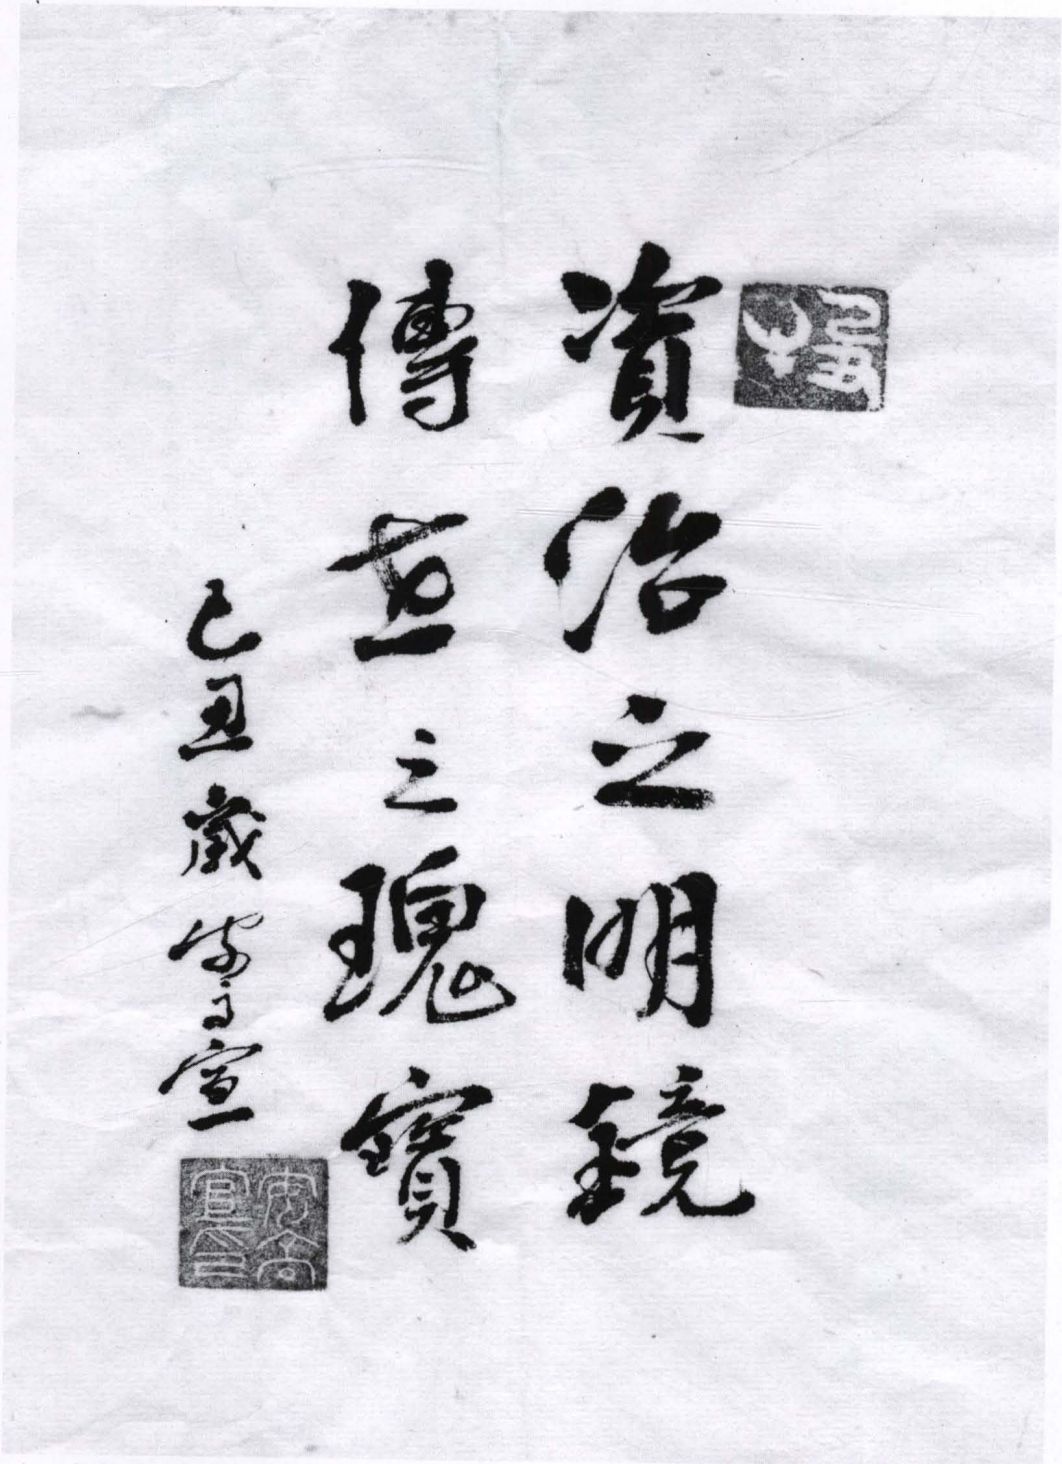 資治之明鏡
傳世之瑰寶
己丑歲安高宣